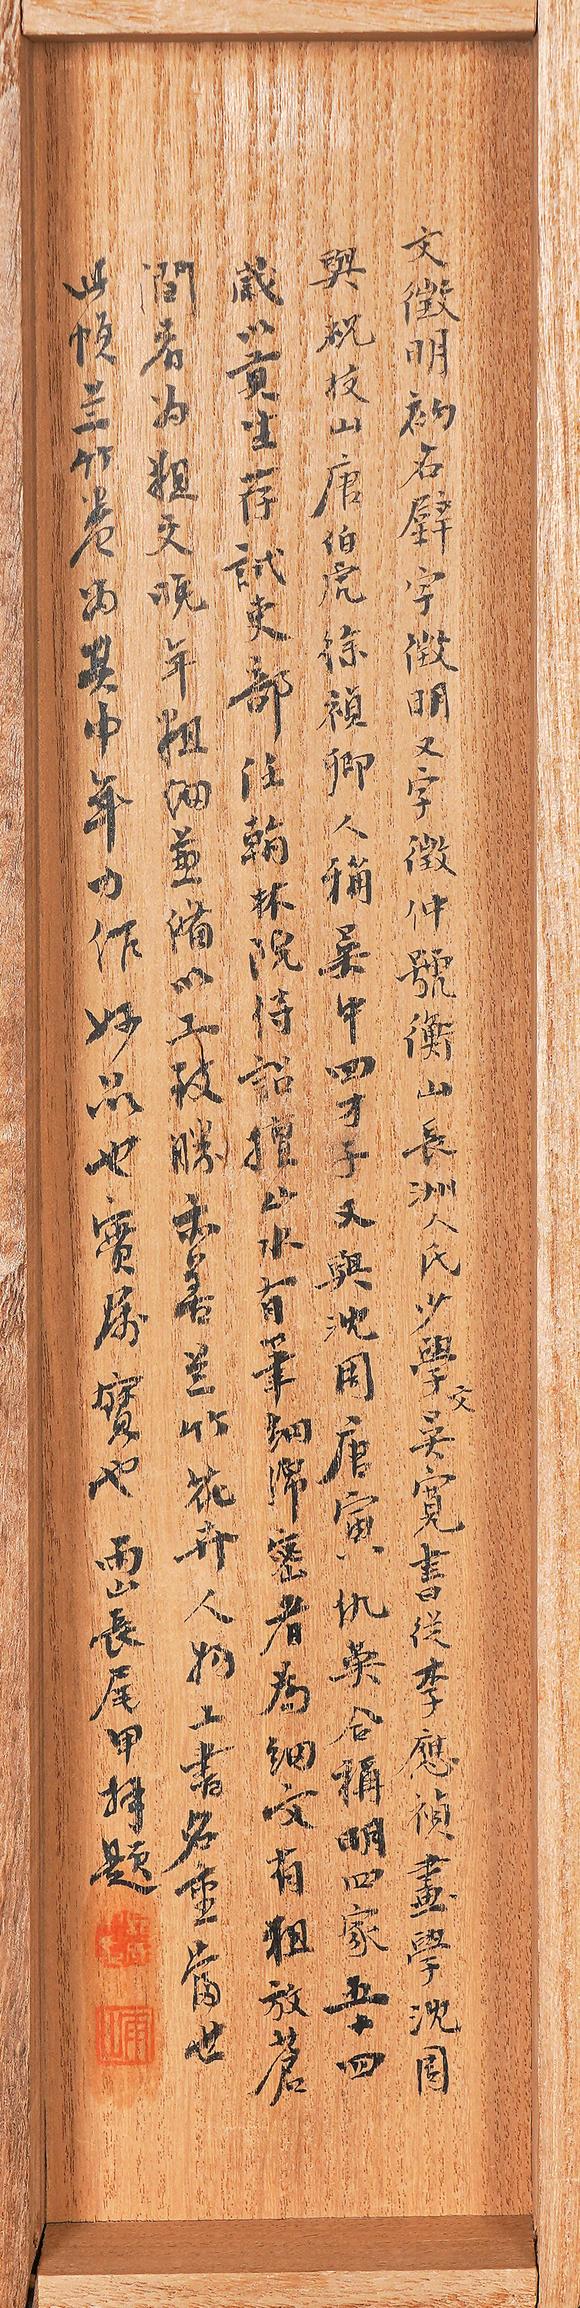 文徵明初名壁字徵明又字徵仲號衡山長洲人氏少學文吳寬書從李應禎畫學沈周
與祝枝山唐伯虎徐禎卿人稱吳中四才子又與沈周唐寅仇英合稱明四家五十四
歲以貢生荐試吏部任翰林院侍詔擅山水有筆細縝密者為細文有粗放蒼
潤者為粗文晚年粗細兼備以工致勝亦善兰竹花卉人物工書名重當世
此幀兰竹卷為其中年力作妙品也實屬寶也 雨山長尾甲拜題